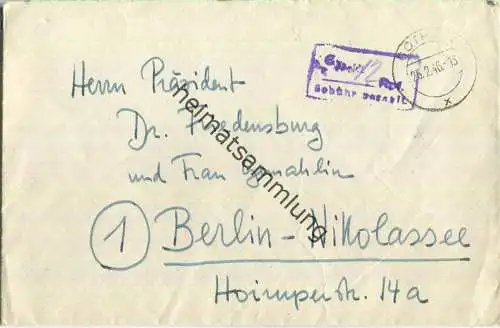 Herrn Präsident
Dr. Friedensburg
und Frau Gemahlin
1 Berlin-Nikolassee
Hoiruperstr. 14a
12 Rpf.
Gebühr bezahlt
26.2.46.-18
x
heimatsammlung